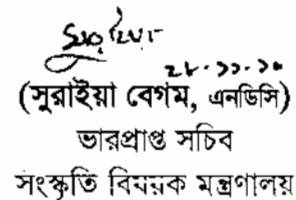 ২৮.১১.১০
(সুরাইয়া বেগম, এনডিসি)
ভারপ্রাপ্ত সচিব
সংস্কৃতি বিষয়ক মন্ত্রণালয়